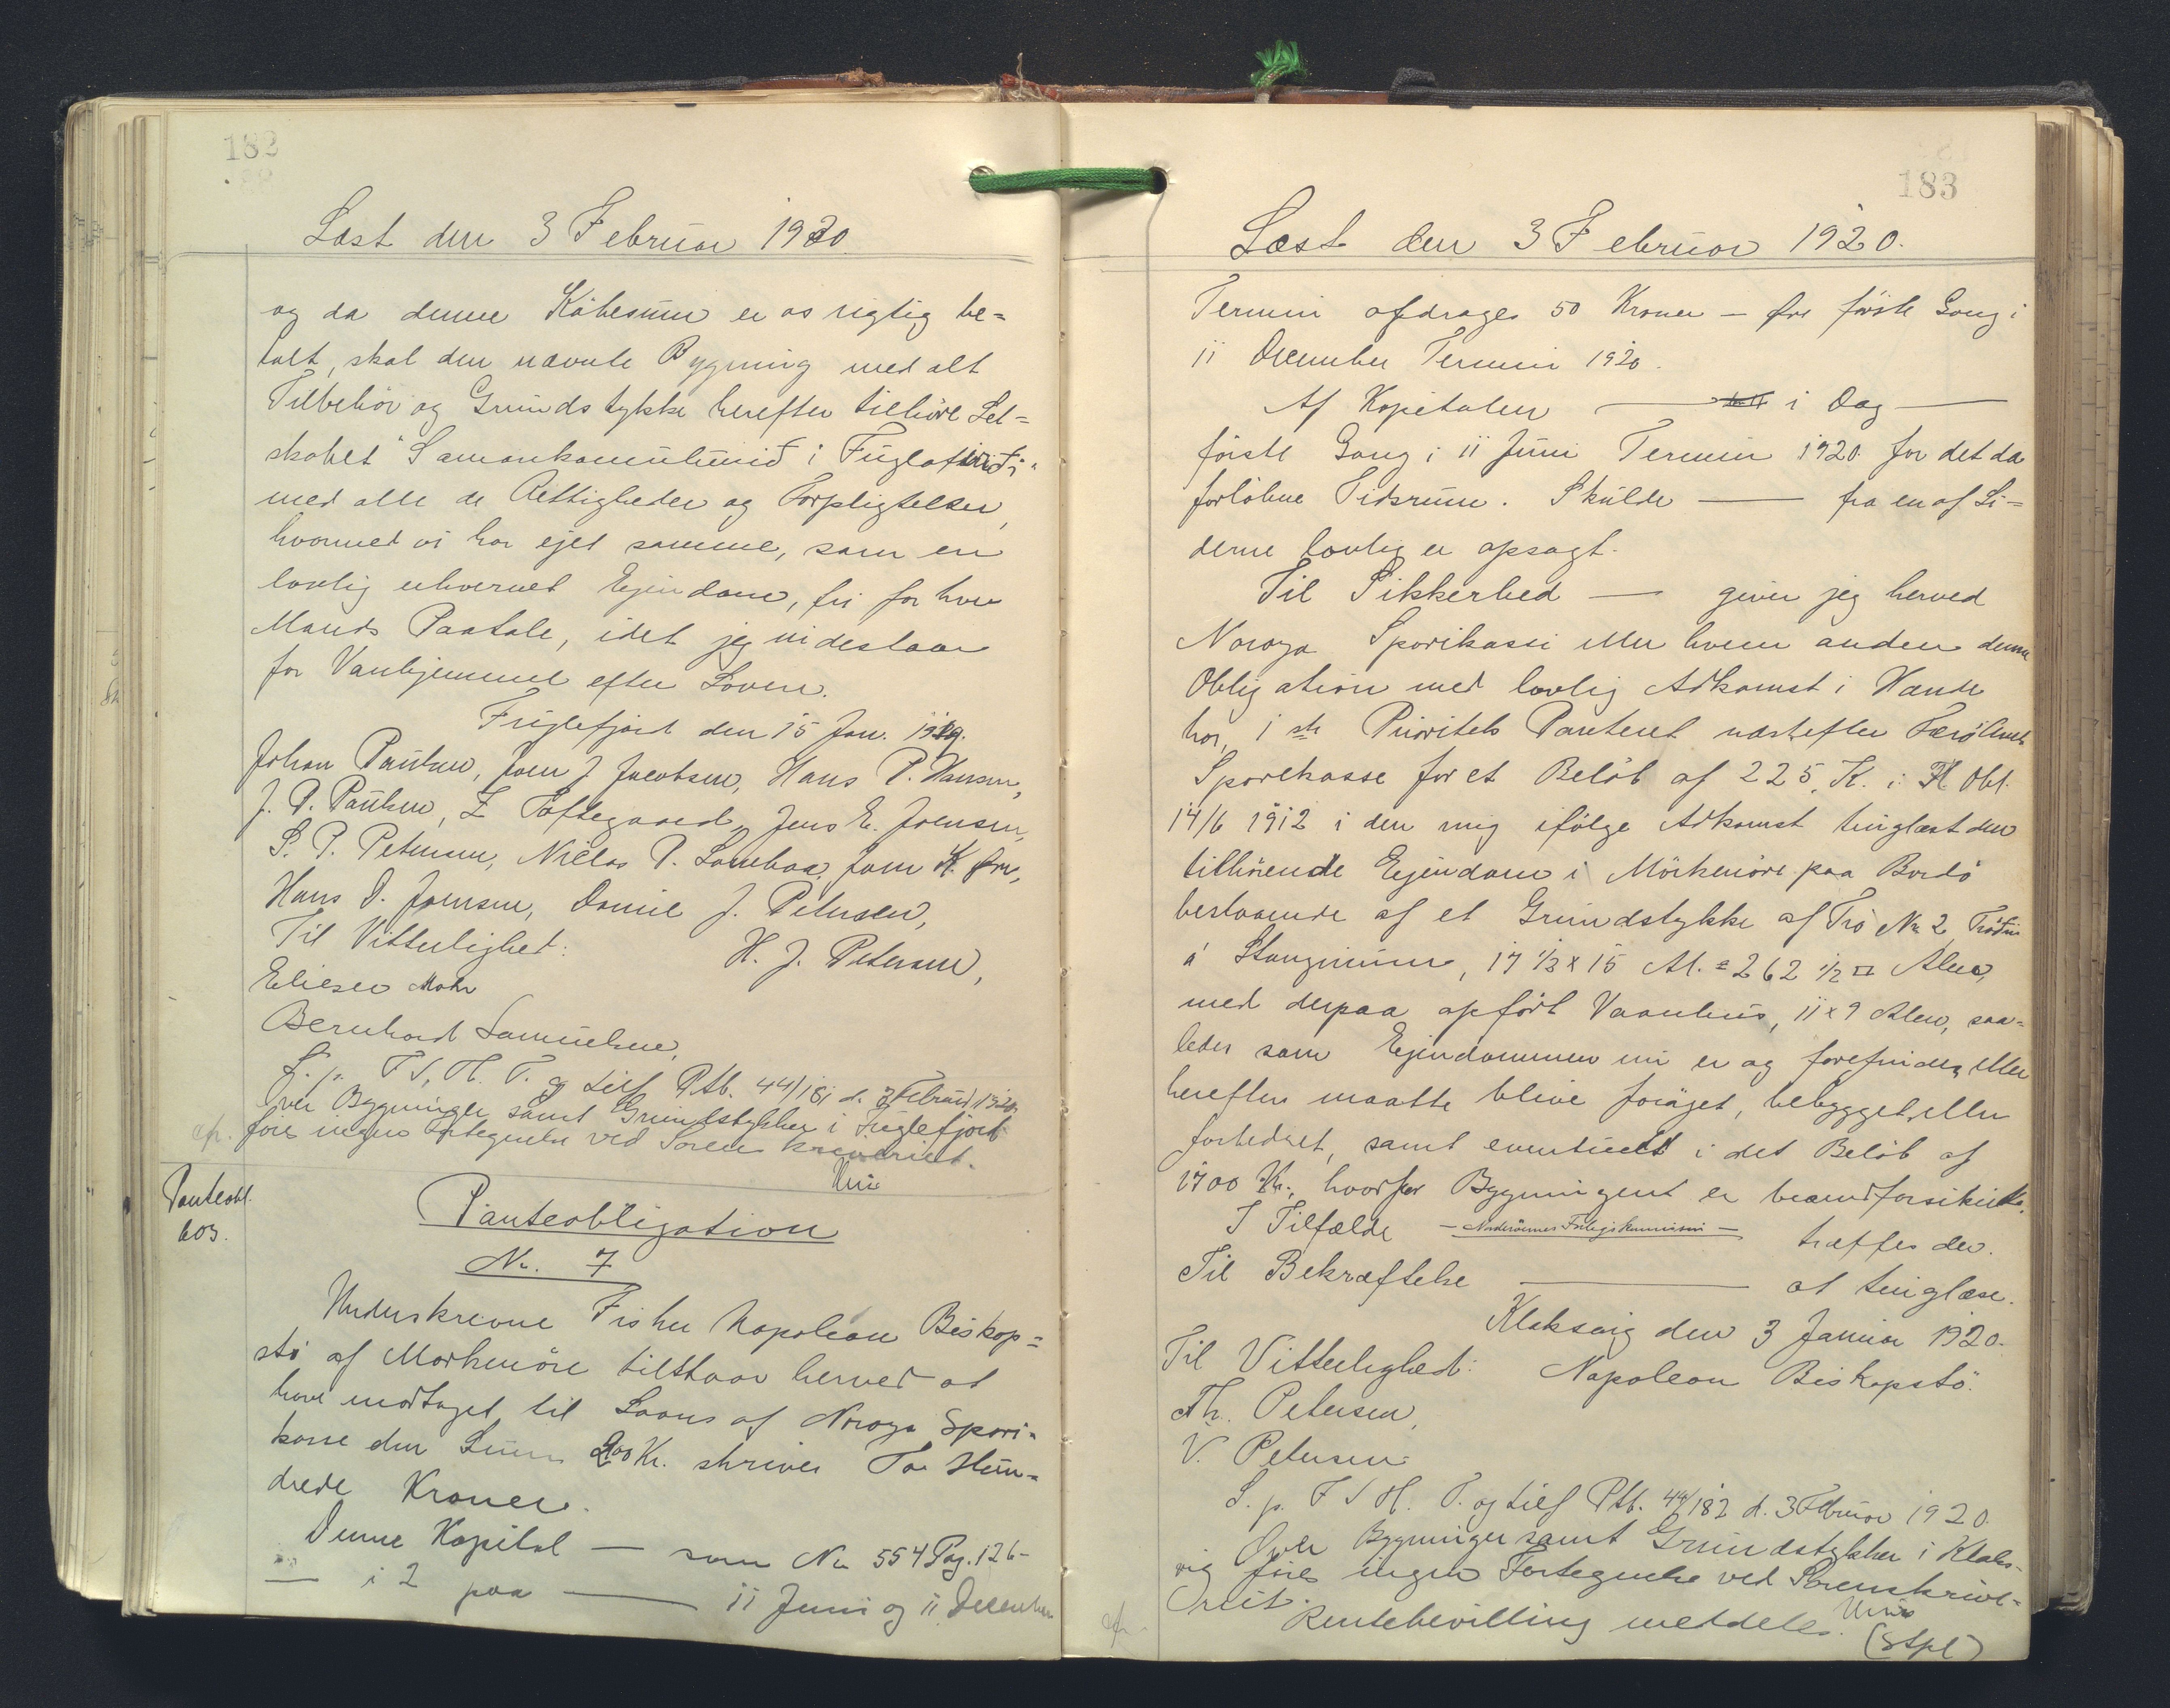 182
Læst den 3 Februar 1920.
og da denne Köbesum er os rigtig be=
talt, skal den nævnte Bygning med alt
Tilbehör og Grundstykke herefter tilhöre Sel=
skabet "Samankomuhúsið i Fuglafirði"
med alle de Rettigheder og Forpligtelser,
hvormed vi har ejet samme, som en
lovlig erhvervet Ejendom, fri for hver
Mands Paatale, idet jeg indestaar
for Vanhjemmel efter Loven.
Fuglefjord den 15 Jan. 1919.
Johan Poulsen, Joen J Jacobsen, Hans P. Hansen,
J. P. Poulsen, Z Toftegaard, Jens E. Joensen,
S. P. Petersen, Niclas P. Lambaa, Joen K.
Hans D. Joensen, Daniel J. Petersen,
Til Vitterlighed: H. J. Petersen,
Elieser Mohr
Bernhard Samuelsen,
L. p. F J, H. T. og tilf Ptb. 44/181 d. 3 Februar 1920.
Over Bygninger samt Grundstykker i Fuglefjord
föres ingen Fortegnelse ved Sorenskriveriet.
Panteobl.
603.
Panteobligation
No. 7
Underskrevne Fisker Napoleon Biskop=
stö af Morkenöre tilstaar herved at
have modtaget til Laans af Noroya Spari=
kasse den Sum 200 Kr. skriver To Hun=
drede Kroner.
Denne Kapital — som No 554 Pag. 126-
— i 2 paa — 11 Juni og 11 December
183
Læst den 3 Februar 1920.
Termin afdrages 50 Kroner — förste Gang i
11 December Termin 1920.
Af Kapitalen — i Dag —
förste Gang i 11 Juni Termin 1920 for det da
forlöbne Tidsrum. Skulde — fra en af Si=
derne lovlig er opsagt.
Til Sikkerhed — giver jeg herved
Noroya Sparikassi eller hvem anden denne
Obligation med lovlig Adkomst i Hænde
har, 1ste Prioritets Panteret næstefter Færö Amts
Sparekasse for et Belöb af 225, K. i Obl.
14/6 1912 i den mig ifölge Adkomst tinglæst den
tilhörende Ejendom i Mörkenöre paa Bordö
bestaaende af et Grundstykke af Trö No 2
á Stanginum, 17 1/2 x 15 Al. = 262 1/2 □ Alen,
med derpaa opfört Vaanhus, 11 x 9 Alen, saa=
ledes som Ejendommen nu er og forefindes, eller
herefter maatte blive foröget, bebygget, eller
forbedret, samt eventuelt i det Belöb af
1700 Kr., hvorfor Bygningen er brandforsikret.
I Tilfælde — Norderöernes Forligskommission — træffes der.
Til Bekræftelse — at tinglæse.
Klaksvig den 3 Januar 1920.
Til Vitterlighed: Napoleon Biskopstö.
Th. Petersen,
V. Petersen
L. p. F J H. T. og tilf Ptb. 44/182 d. 3 Februar 1920
Over Bygninger samt Grundstykker i Klaks-
vig föres ingen Fortegnelse ved Sorenskrive=
riet.
Rentebevilling meddeles.
(Stpl)